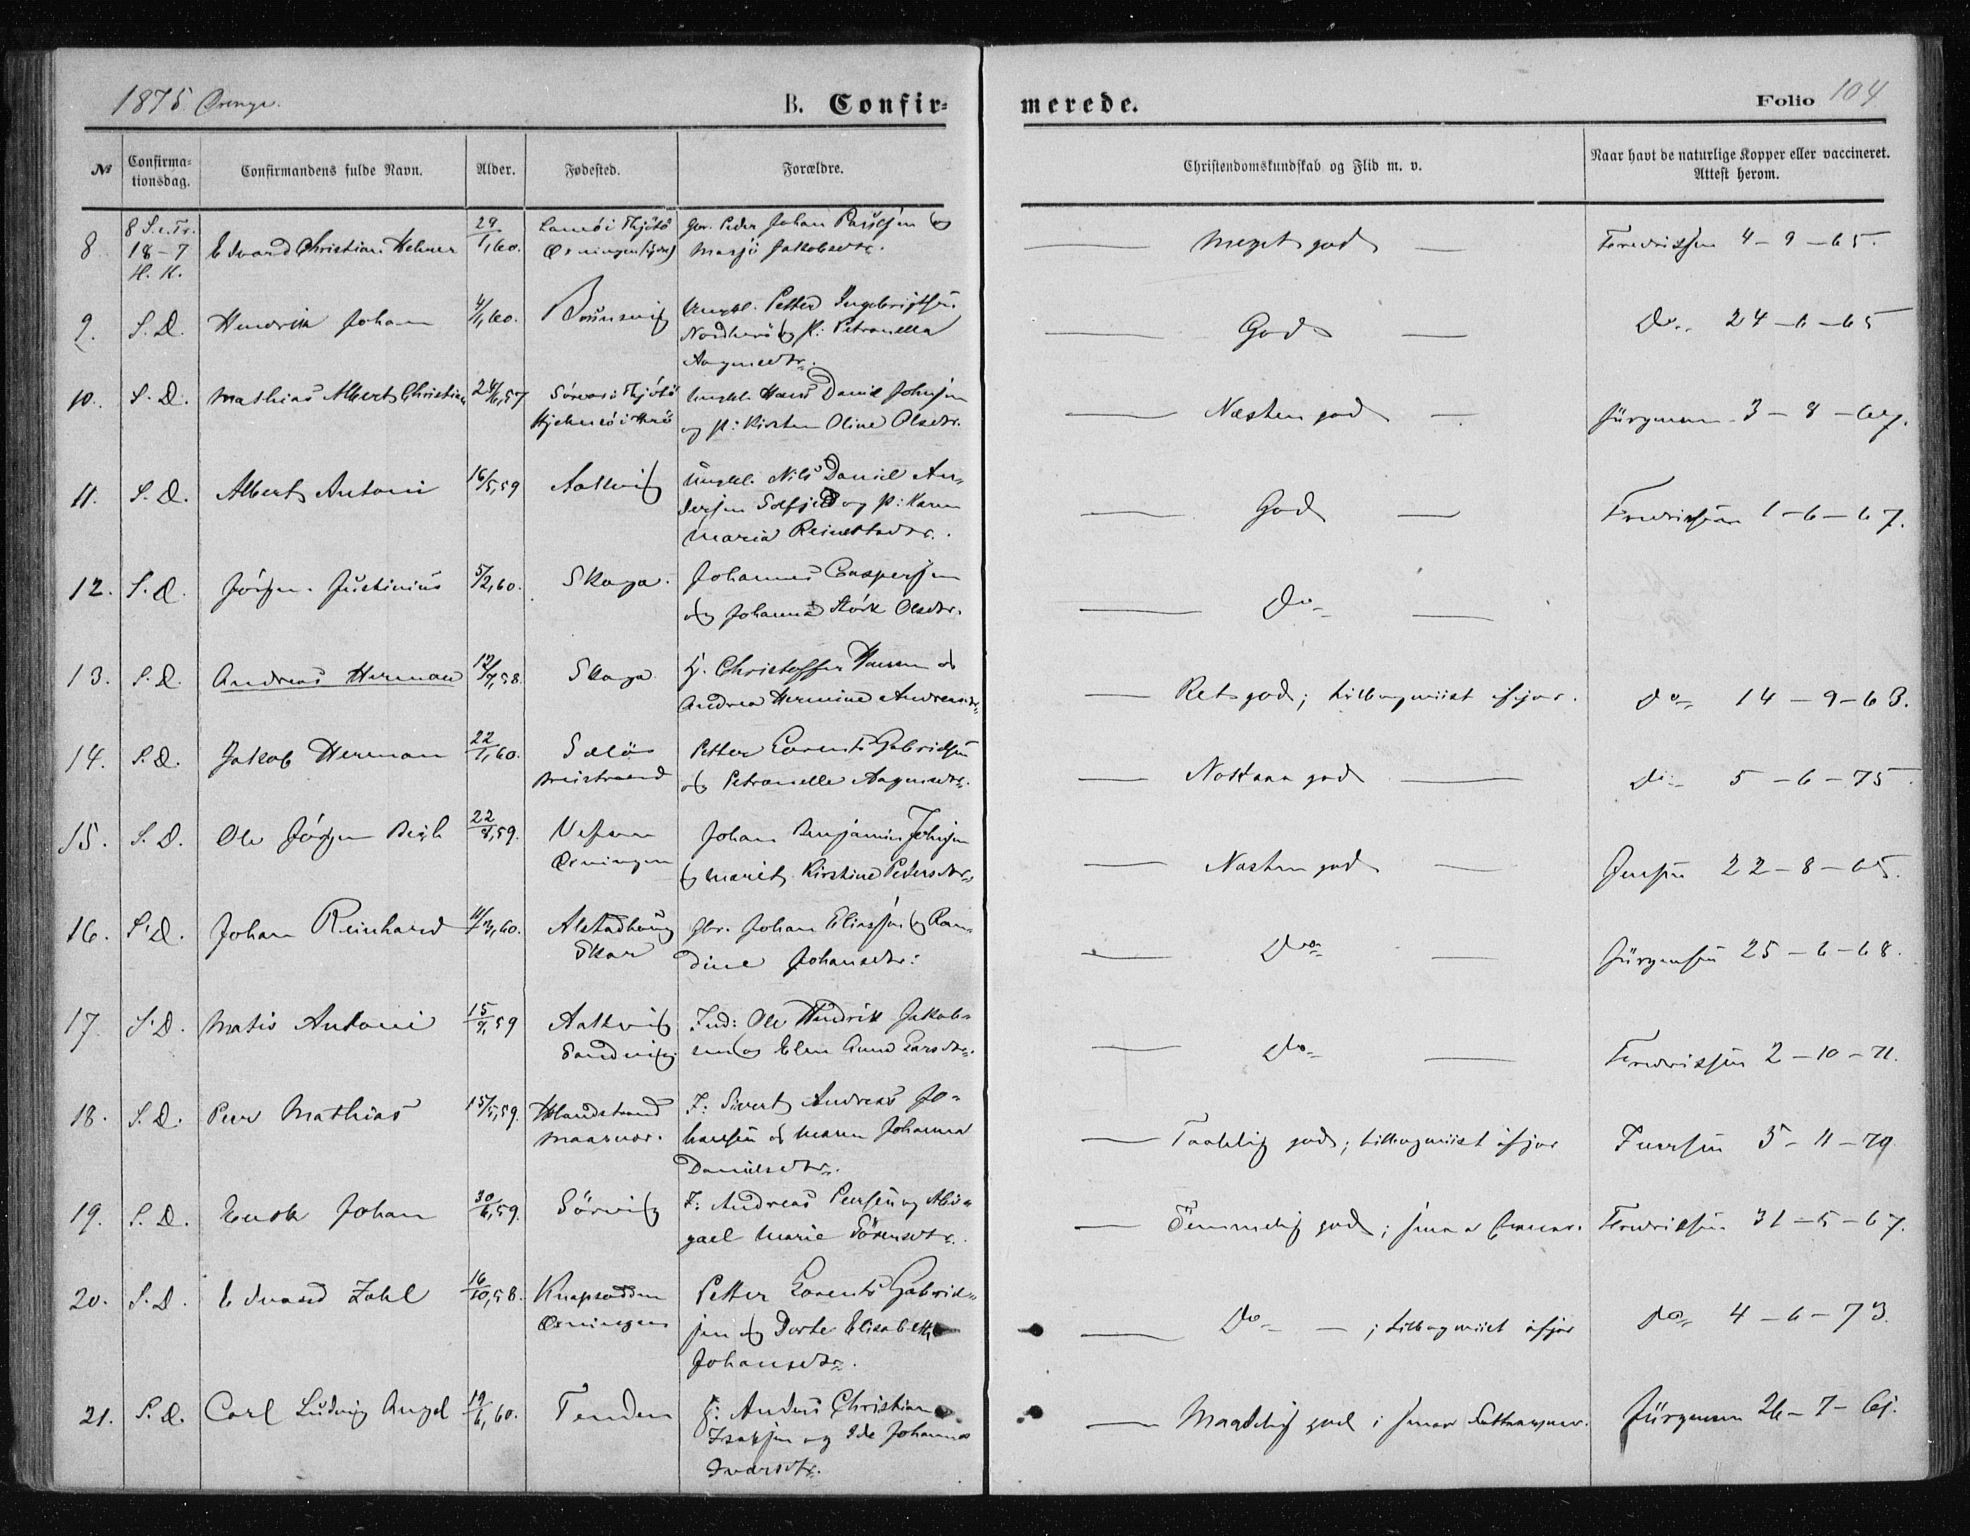 1875 Drenge.
B. Confir-
merede.
Folio 104
№
Confirma-
tionsdag.
Confirmandens fulde Navn.
Alder.
Fødested.
Forældre.
Christendomskundskab og Flid m. v.
Naar havt de naturlige Kopper eller vaccineret.
Attest herom.
8.
8 S. e. Tr.
18-7
H. K.
Edvard Christian
29/1,60.
i Thjötö
Gbr. Peder Johan Paulsen og
Jakobsdtr.
Meget god
Fredriksen 4-9-65.
9.
S. D.
Hendrik Johan
4/1,60.
Ungkl. Petter Ingebrigtsen
p: Petranella
Aagesdtr.
God
Do. 24-6-65
10.
S. D.
Mathias Albert Christian
24/6,57
i Thjötö
Ungkl. Hans Daniel Johnsen
og p: Kirsten Oline Olsdtr.
Næsten god
Jürgensen 3-8-
11.
S. D.
Albert Antoni
16/5,59
Aakvig
Ungkl. Nils Daniel An-
dersen Solfjeld og p: Karen
Maria
God
Fredriksen 1-6-67.
12.
S. D.
Jörgen Justinius
5/2,60.
Skaga.
Johannes Caspersen
og Johanna Störk Olsdtr.
Do
13.
S. D.
Andreas Herman
12/7,58.
Skaga
Christoffer Hansen og
Andrea Hermine Andreasdtr.
Ret god; tilbageviist ifjor.
Do 14-9-63.
14.
S. D.
Jakob Herman
22/1,60.
Petter Lorents Gabrielsen
og Petranelle Aagesdtr.
Noksaa god
Do 5-6-75
15.
S. D.
Ole Jörgen
22/8,59.
Vefsen
Johan Benjamin Johnsen
og Marit Kirstine Pedersdtr.
Næsten god
Jensen 22-8-65.
16.
S. D.
Johan Reinhard
11/3,60.
Alstadhoug
Skar
Gbr. Johan Eliassen og Ran-
dine Johansdtr.
Do
Jürgensen 25-6-68.
17.
S. D.
Matis Antoni
15/7,59
Aakvig
Sandvig.
Ind: Ole Hendrik Jakob-
sen og Elen Anna Larsdtr.
Do
Fredriksen 2-10-71.
18.
S. D.
Peer Mathias
15/5,59.
I: Sivert Andreas Jo-
hansen og Maren Johanna
Danielsdtr.
Taalelig god; tilbageviist ifjor
Iversen 5-11-70
19.
S. D.
Enok Johan
30/6,59.
Sörvig
I: Andreas Persen og Abi-
gael Marie Sörensdtr.
Temmelig god; smaa
Fredriksen 31-5-67.
20.
S. D.
Edvard Zahl
16/10,58.
Petter Lorents Gabriel-
sen og Dorte Elisabeth
Johansdtr.
Do ; tilbageviist ifjor
Do 4-6-73.
21.
S. D.
Carl Ludvig Angel
19/6,60.
Tenden
Anders Christian
Isaksen og Ide Johanna
Ivarsdtr.
Maadelig god; smaa
Jürgensen 26-7-61.